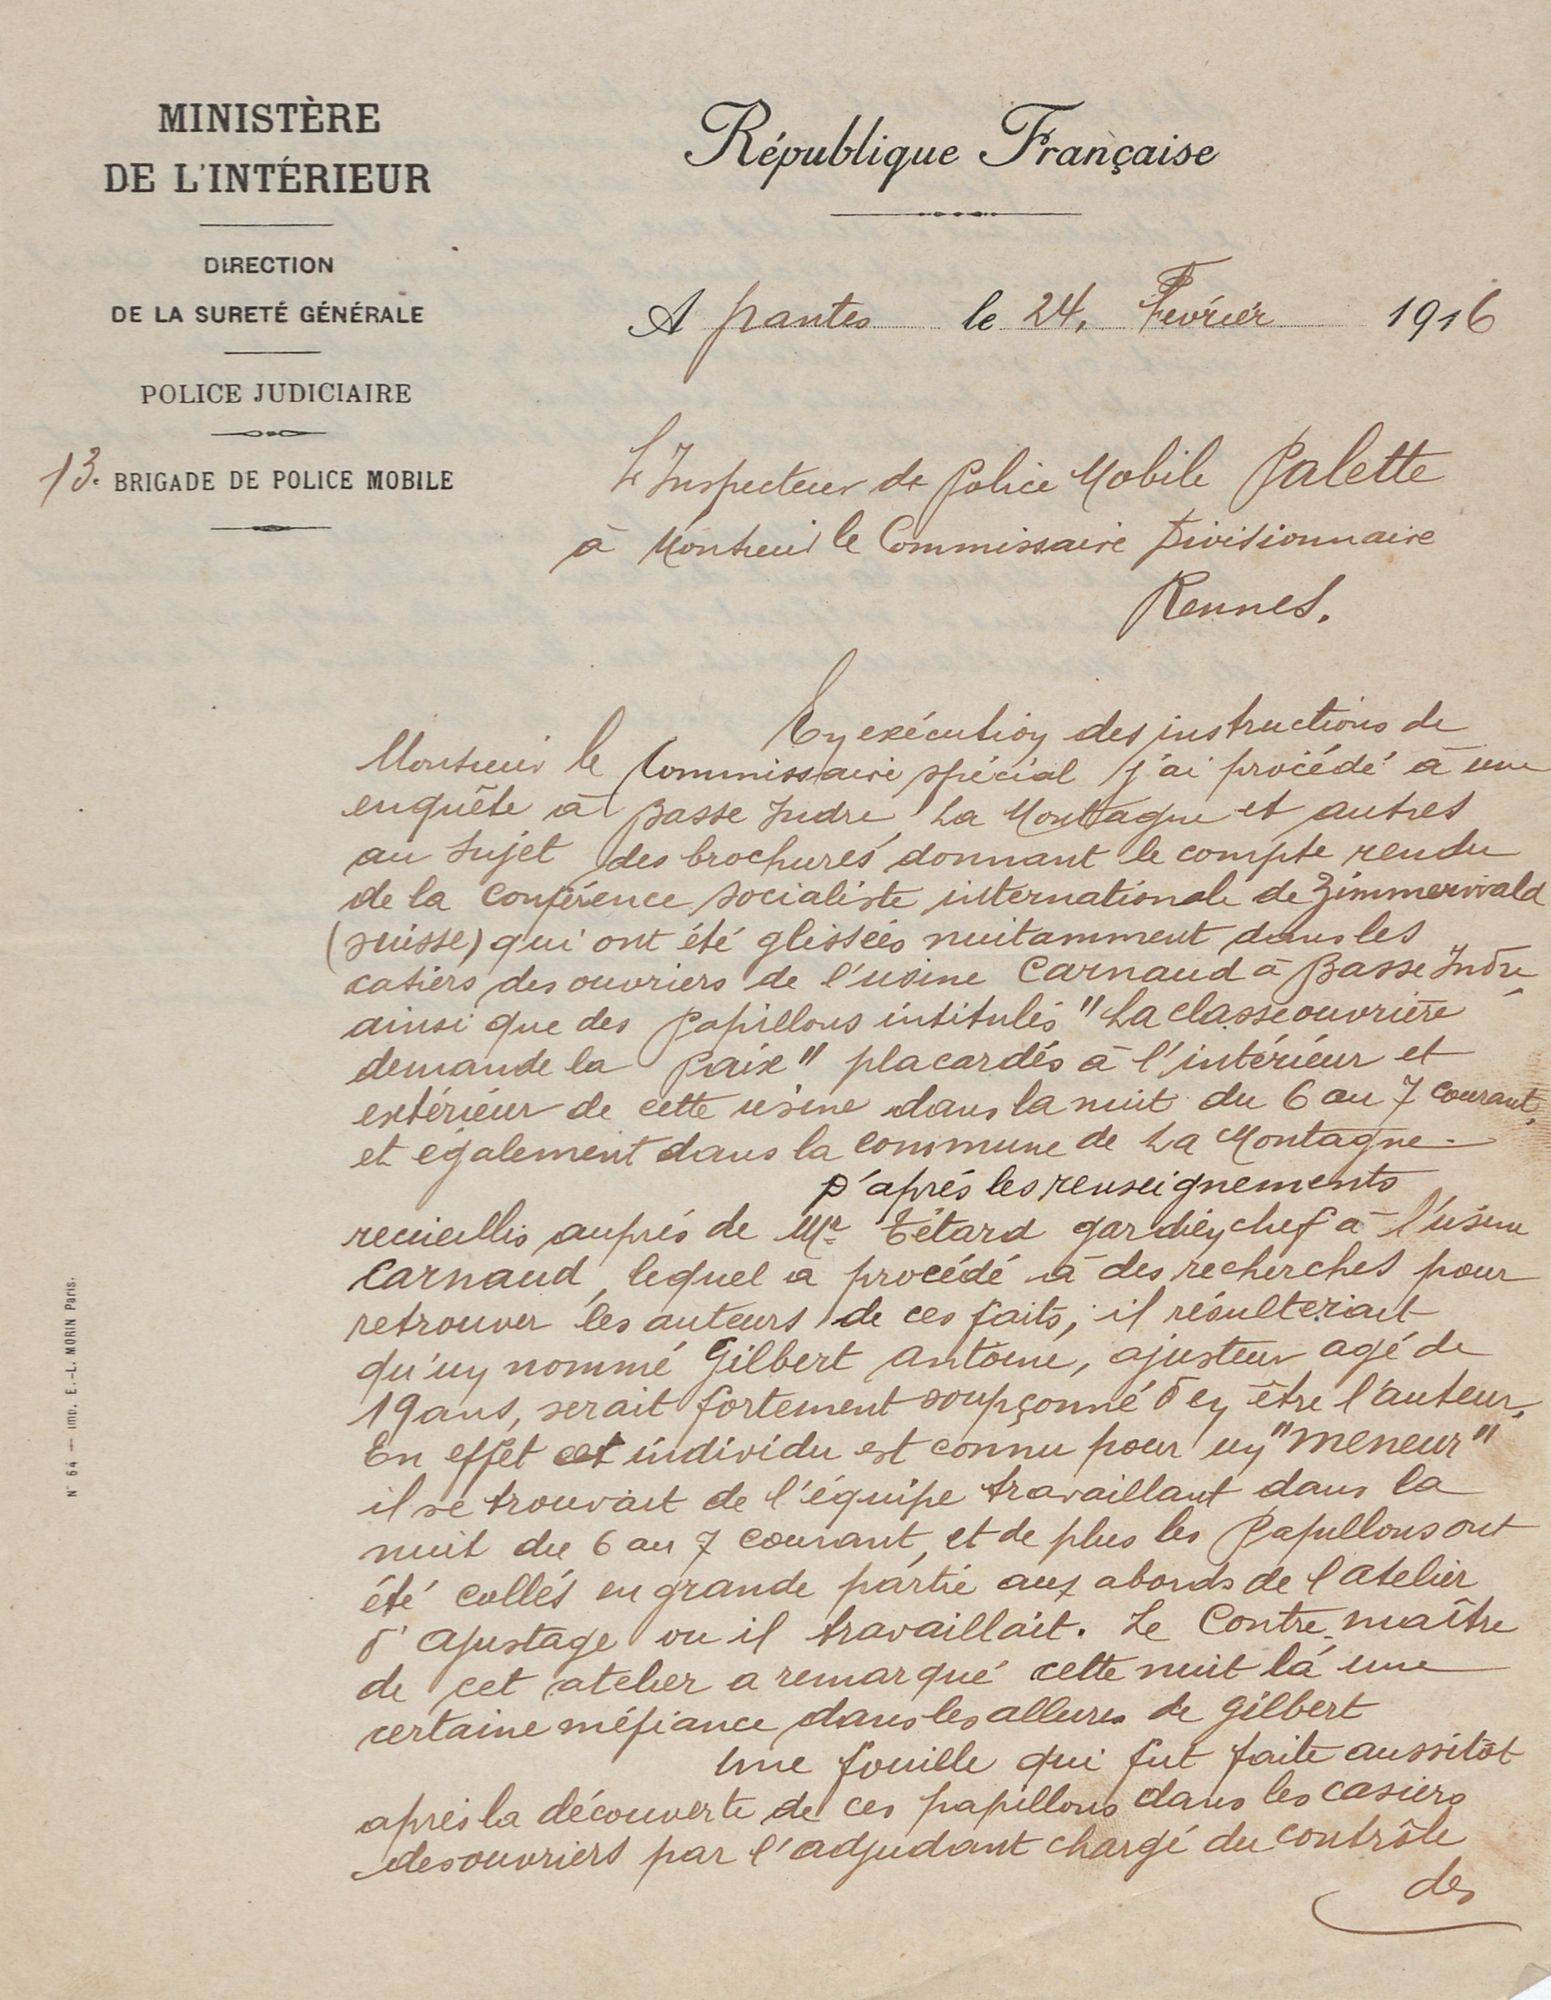 MINISTÈRE
DE L'INTÉRIEUR
DIRECTION
DE LA SURETÉ GÉNÉRALE
POLICE JUDICIAIRE
13e BRIGADE DE POLICE MOBILE
République Française
A Nantes le 24 Février 1916
L'Inspecteur de Police Mobile Palette
à Monsieur le Commissaire Divisionnaire
Rennes.
En exécution des instructions de
Monsieur le Commissaire spécial j'ai procédé à une
enquête à Basse Indre, La Montagne et autres
au sujet des brochures donnant le compte rendu
de la Conférence socialiste internationale de Zimmerwald
(suisse) qui ont été glissées nuitamment dans les
casiers des ouvriers de l'usine Carnaud à Basse Indre
ainsi que des Papillons intitulés "La classe ouvrière
demande la Paix" placardés à l'intérieur et
extérieur de cette usine dans la nuit du 6 au 7 courant,
et également dans la commune de La Montagne.
D'après les renseignements
recueillis auprès de Mr Tétard gardien chef à l'usine
Carnaud, lequel a procédé à des recherches pour
retrouver les auteurs de ces faits, il résulterait
qu'un nommé Gilbert Antoine, ajusteur agé de
19 ans, serait fortement soupçonné d'en être l'auteur.
En effet cet individu est connu pour un "meneur"
il se trouvait de l'équipe travaillant dans la
nuit du 6 au 7 courant, et de plus les Papillons ont
été collés en grande partie aux abords de l'atelier
d'ajustage ou il travaillait. Le Contre-maître
de cet atelier a remarqué cette nuit là une
certaine méfiance dans les allures de Gilbert
Une fouille qui fut faite aussitôt
après la découverte de ces papillons dans les casiers
des ouvriers par l'adjudant chargé du contrôle
des
N° 64 — Imp. E.-L. MORIN Paris.